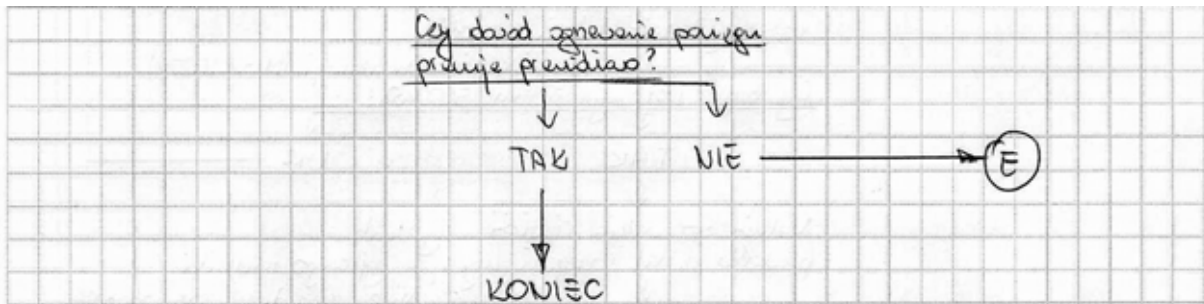 Czy dojód ogrzewanie pociągu
pracuje prawidłowo?
TAK NIE E
KONIEC